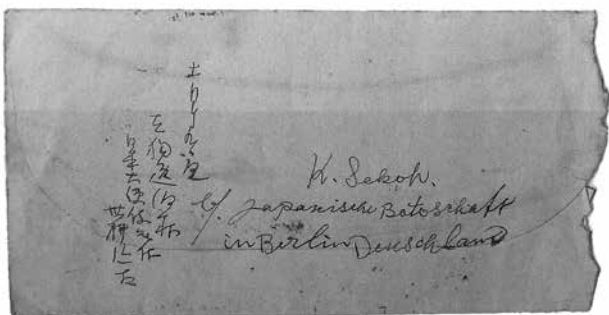 在独逸伯林
日本大使館気付
世耕弘一
K. Sekoh.
c/. Japanische Botoschaft
in Berlin Deuschland